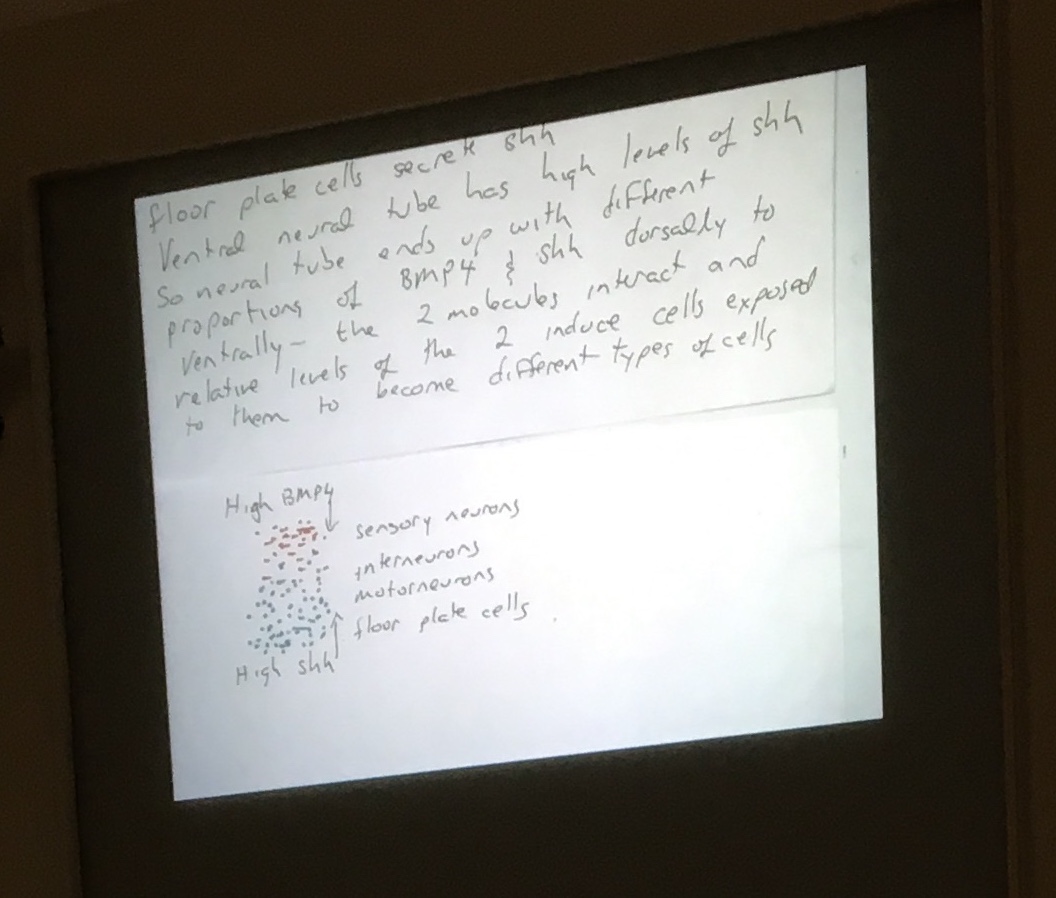 floor plate cells secrete shh
Ventral neural tube has high levels of shh
So neural tube ends up with different
proportions of BMP4 & shh dorsally to
ventrally - the 2 molecules interact and
relative levels of the 2 induce cells exposed
to them to become different types of cells
High BMP4
sensory neurons
interneurons
motorneurons
floor plate cells
High shh